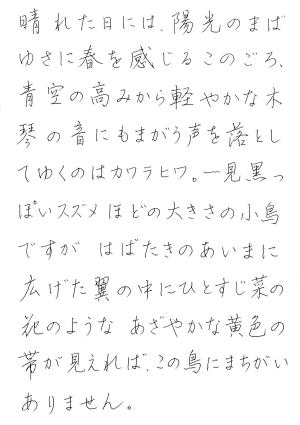 晴れた日には、陽光のまば
ゆさに春を感じるこのごろ、
青空の高みから軽やかな木
琴の音にもまがう声を落とし
てゆくのはカワラヒワ。一見、黒っ
ぽいスズメほどの大きさの小鳥
ですが はばたきのあいまに
広げた翼の中にひとすじ菜の
花のような あざやかな黄色の
帯が見えれば、この鳥にまちがい
ありません。